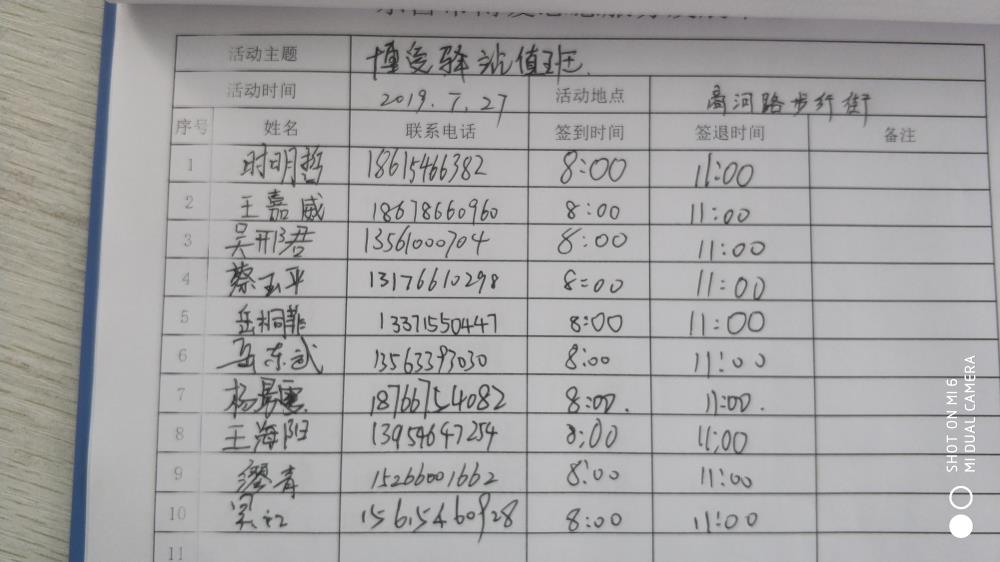 活动主题 博爱驿站值班.
活动时间 2019.7.27 活动地点 商河路步行街
序号 姓名 联系电话 签到时间 签退时间 备注
1 时明哲 18615466382 8:00 11:00
2 王嘉威 18678660960 8:00 11:00
3 吴邢君 13561000704 8:00 11:00
4 蔡玉平 13176610298 8:00 11:00
5 岳桐菲 13371550447 8:00 11:00
6 岳东武 13563393030 8:00 11:00
7 杨景惠 18766754082 8:00. 11:00.
8 王海阳 13954647254 8:00 11:00
9 缪青 15266001662 8:00 11:00
10 15615460928 8:00 11:00
11
SHOT ON MI 6
MI DUAL CAMERA